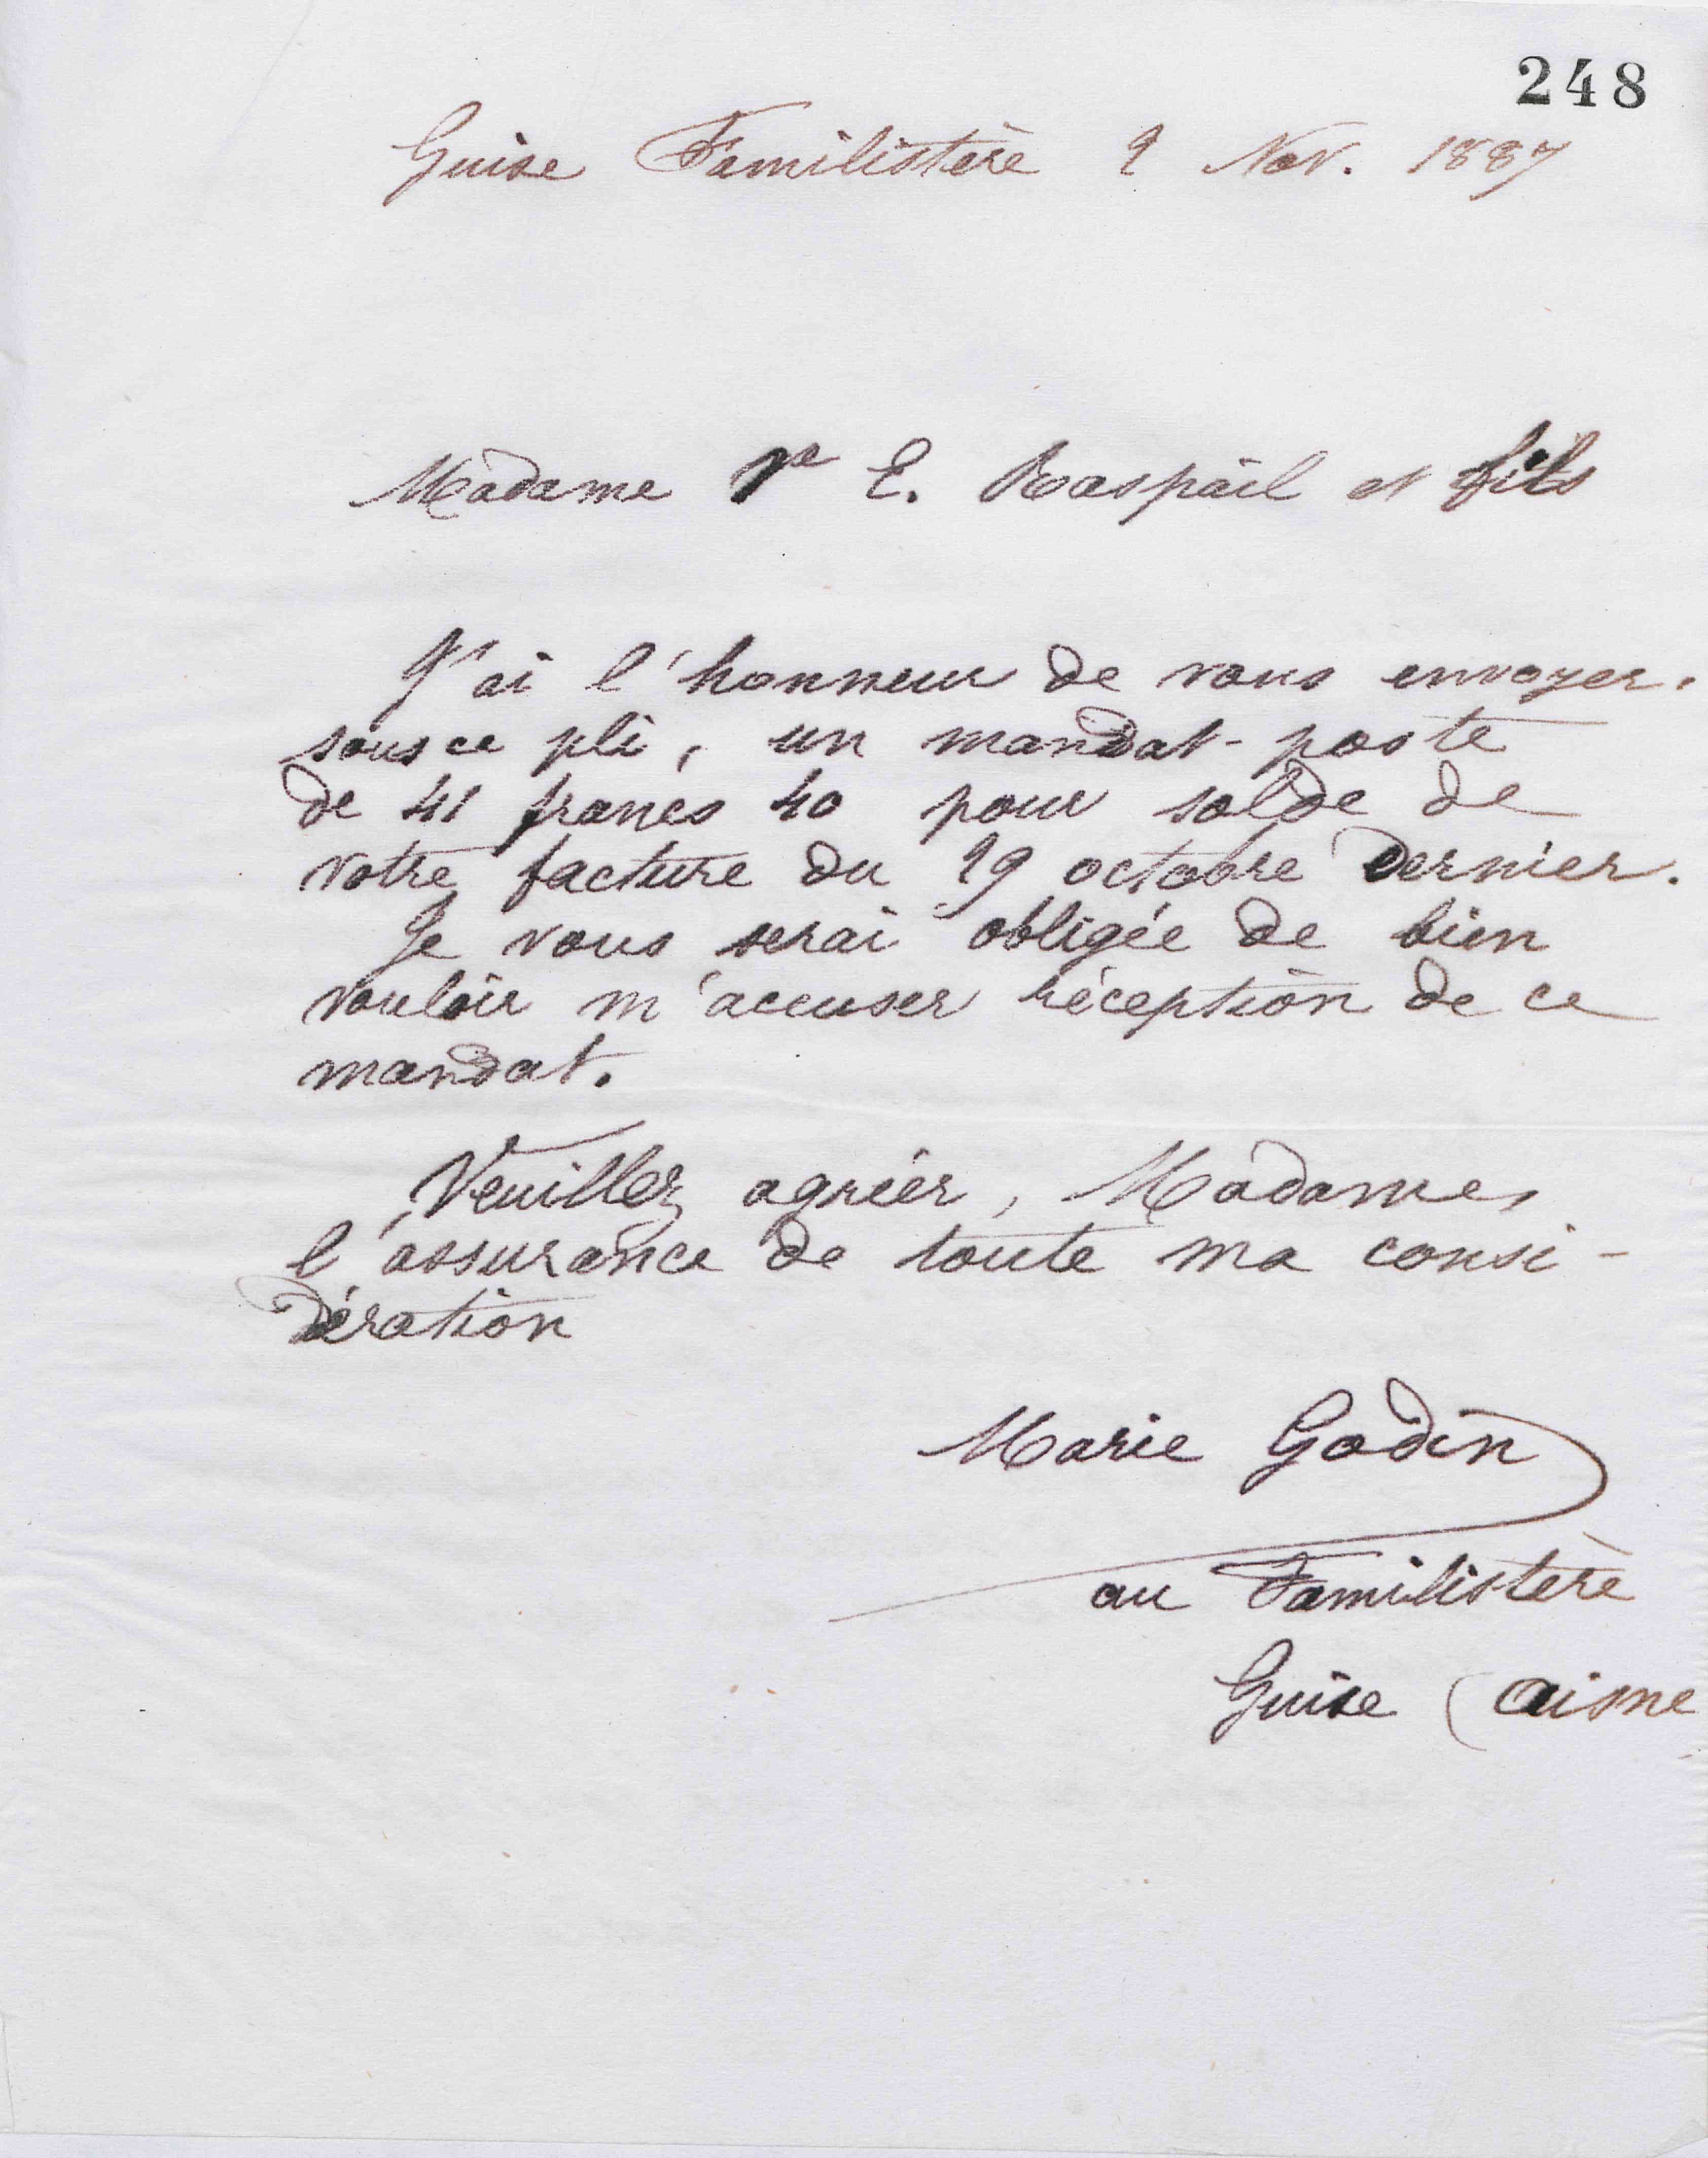 248
Guise Familistère 9 Nov. 1887
Madame Ve E. Raspail et fils
J'ai l'honneur de vous envoyer.
sous ce pli, un mandat-poste
de 41 francs 40 pour solde de
votre facture du 29 octobre dernier.
Je vous serai obligée de bien
vouloir m'accuser réception de ce
mandat.
Veuillez agréer, Madame,
l'assurance de toute ma consi-
dération
Marie Godin
au Familistère
Guise (Aisne